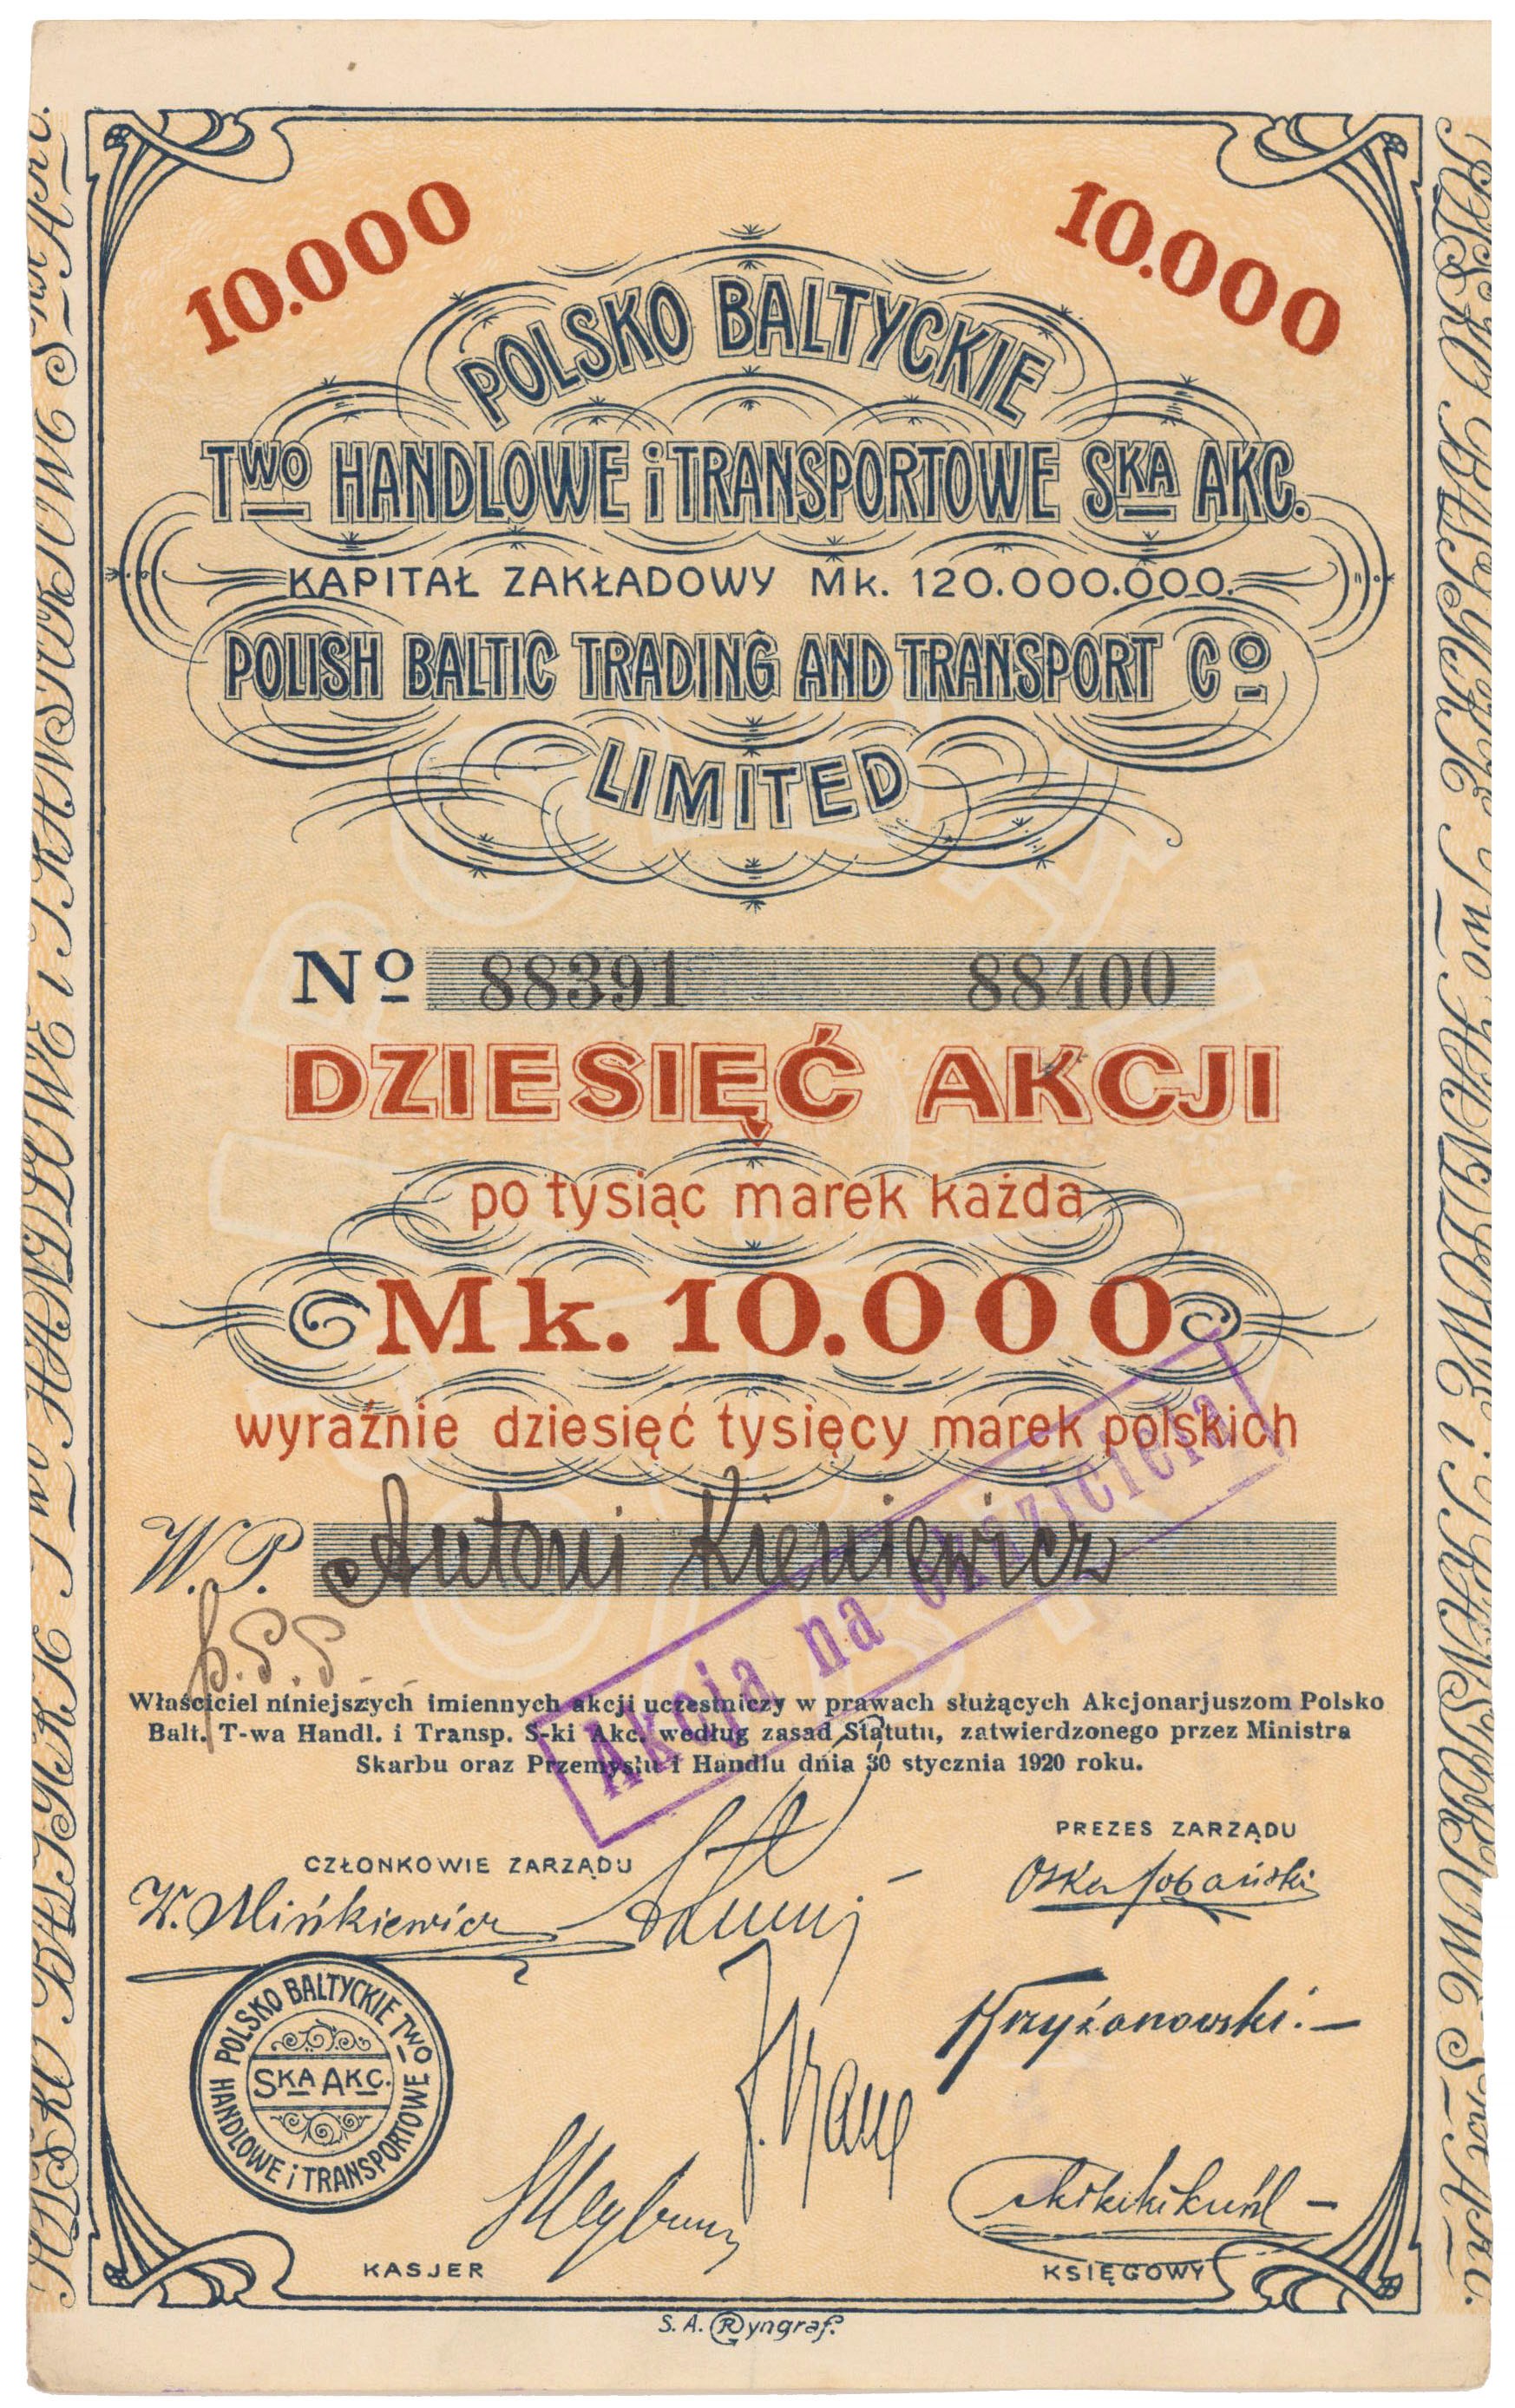 10.000 10.000
POLSKO BALTYCKIE
TWO HANDLOWE i TRANSPORTOWE SKA AKC.
KAPITAŁ ZAKŁADOWY Mk. 120.000.000.
POLISH BALTIC TRADING AND TRANSPORT Co
LIMITED
No 88391 88400
DZIESIĘĆ AKCJI
po tysiąc marek każda
Mk. 10.000
wyraźnie dziesięć tysięcy marek polskich
W.P. Antoni Kieniewicz
Akcja na okaziciela
Właściciel niniejszych imiennych akcji uczestniczy w prawach służących Akcjonarjuszom Polsko
Balt. T-wa Handl. i Transp. S-ki Akc. według zasad Statutu, zatwierdzonego przez Ministra
Skarbu oraz Przemysłu i Handlu dnia 30 stycznia 1920 roku.
PREZES ZARZĄDU
CZŁONKOWIE ZARZĄDU
W. Mińkiewicz
Krzyżanowski.
POLSKO BALTYCKIE TWO HANDLOWE i TRANSPORTOWE
SKA AKC.
KASJER KSIĘGOWY
S. A. Ryngraf.
POLSKO BALTYCKIE Two HANDLOWE i TRANSPORTOWE S-ka Akc.
POLSKO BALTYCKIE Two HANDLOWE i TRANSPORTOWE S-ka Akc.